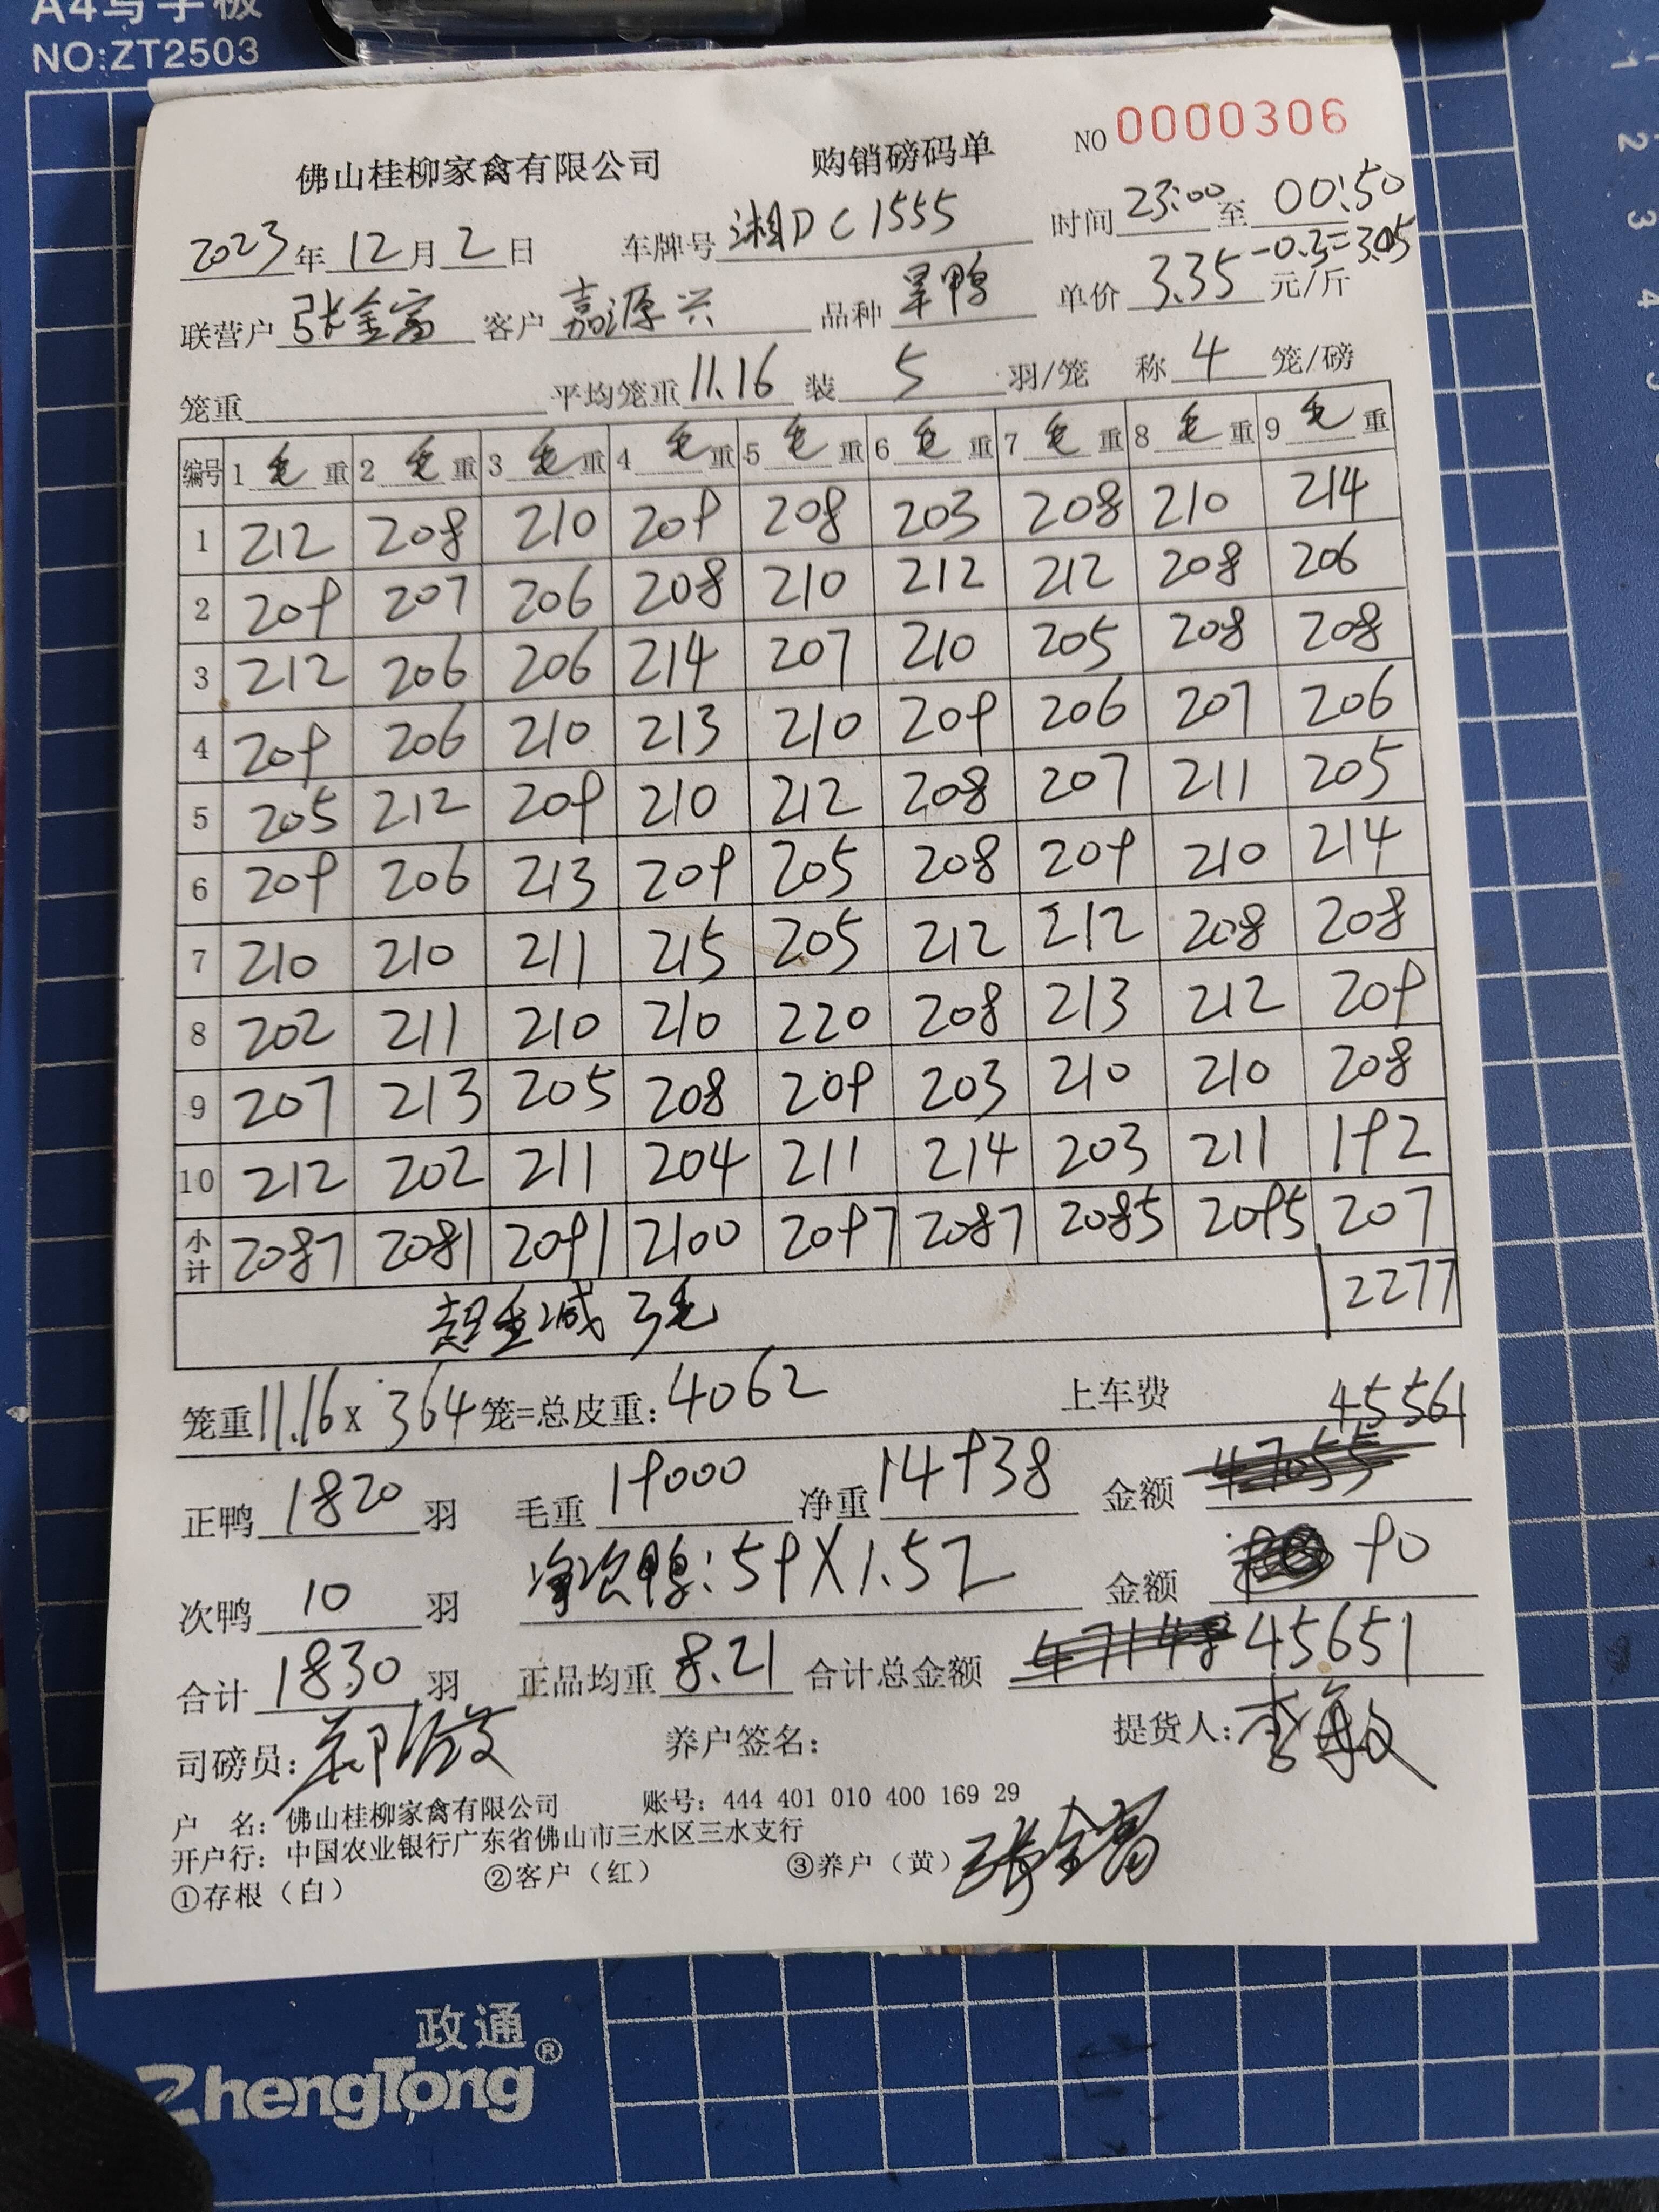 A4写字板
NO:ZT2503
NO 0000306
佛山桂柳家禽有限公司 购销磅码单
2023年12月2日 车牌号 湘DC1555 时间 23:00 至 00:50
联营户 张金富 客户 嘉源兴 品种 旱鸭 单价 3.35-0.3=3.05 元/斤
笼重 平均笼重 11.16 装 5 羽/笼 称 4 笼/磅
编号 1 毛重 2 毛重 3 毛重 4 毛重 5 毛重 6 毛重 7 毛重 8 毛重 9 毛重
1 212 208 210 209 208 203 208 210 214
2 209 207 206 208 210 212 212 208 206
3 212 206 206 214 207 210 205 208 208
4 209 206 210 213 210 209 206 207 206
5 205 212 209 210 212 208 207 211 205
6 209 206 213 209 205 208 209 210 214
7 210 210 211 215 205 212 212 208 208
8 202 211 210 210 220 208 213 212 209
9 207 213 205 208 209 203 210 210 208
10 212 202 211 204 211 214 203 211 192
小计 2087 2081 2091 2100 2097 2087 2085 2095 207
超重减3毛 2277
笼重 11.16 x 364 笼=总皮重: 4062 上车费
正鸭 1820 羽 毛重 19000 净重 14938 金额 47055 45561
次鸭 10 羽 净次鸭: 59X1.52 金额 90
合计 1830 羽 正品均重 8.21 合计总金额 47148 45651
司磅员: 养户签名: 提货人: 李敏
户 名: 佛山桂柳家禽有限公司 账号: 444 401 010 400 169 29
开户行: 中国农业银行广东省佛山市三水区三水支行
①存根（白） ②客户（红） ③养户（黄） 张金富
政通
ZhengTong®
1
2
3
4
5
6